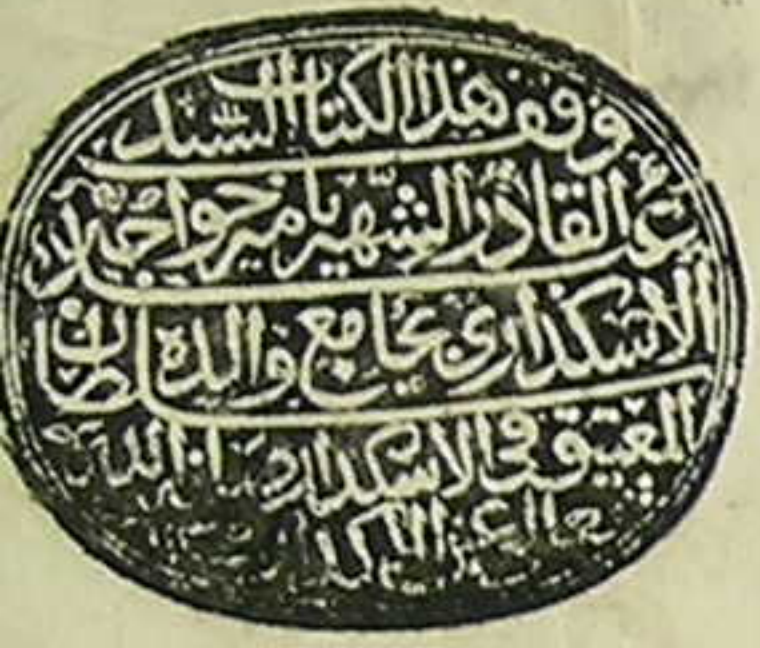 وقف هذا الكتاب السيد
عبد القادر الشهير بامير خواجه
الاسكداري بجامع والده سلطان
العتيق في الاسكدار